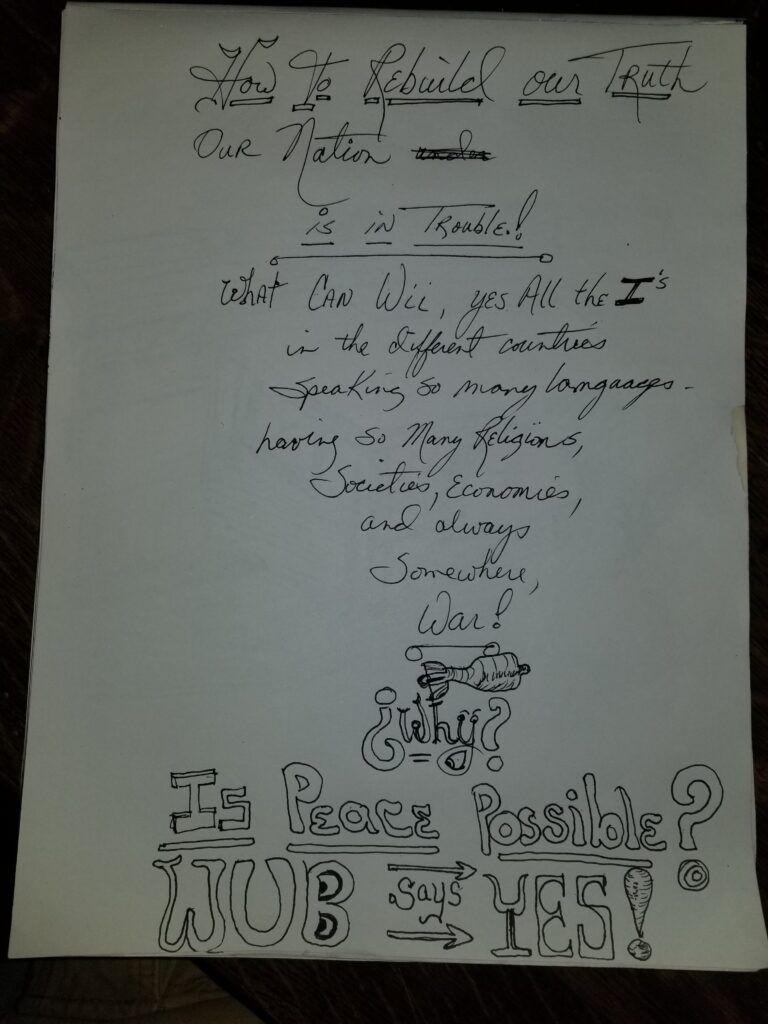 How To Rebuild our Truth
Our Nation
is in Trouble!
What Can Wii, yes All the I's
in the different countries
speaking so many languages -
having so Many Religions,
Societies, Economies,
and always
Somewhere,
War!
¿Why?
Is Peace Possible?
WUB says YES!